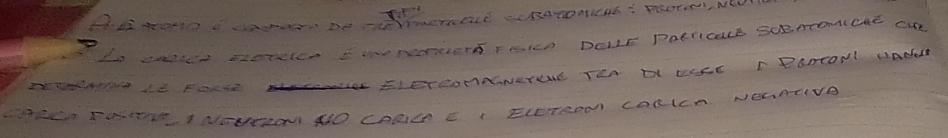 ATOMO È COMPOSTO DA TRE PARTICELLE SUBATOMICHE: PROTONI, NEUTRONI
LA CARICA ELETRICA È UNA PROPRIETÀ FISICA DELLE PARTICELLE SUBATOMICHE CHE
DETERMINA LE FORZE ELETROMAGNETICHE TRA DI ESSE I PROTONI HANNO
CARICA POSITIVA, I NEUTRONI NO CARICA E I ELETRONI CARICA NEGATIVA